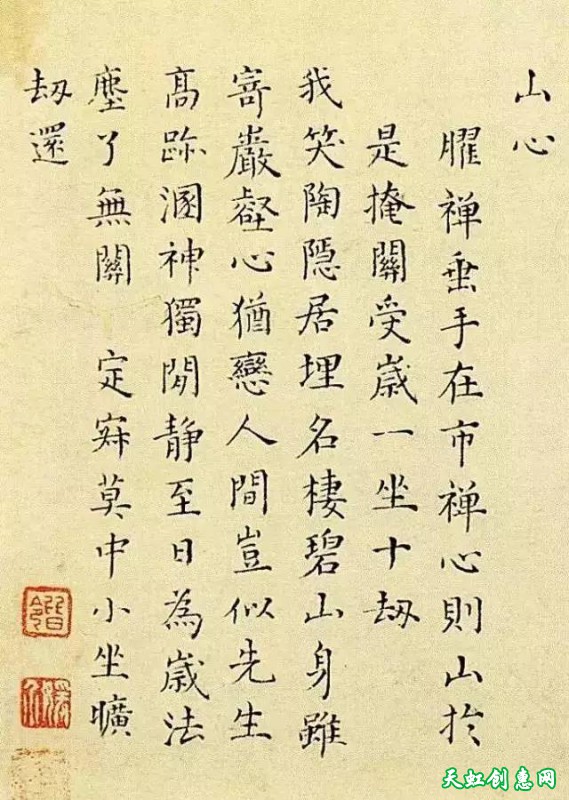 山心
臞禅垂手在市禅心則山於
是掩關受歲一坐十劫
我笑陶隱居埋名棲碧山身雖
寄巖壑心猶戀人間豈似先生
高跡溷神獨閒靜至日為歲法
塵了無關 定寂莫中小坐曠
劫還
天虹创惠网